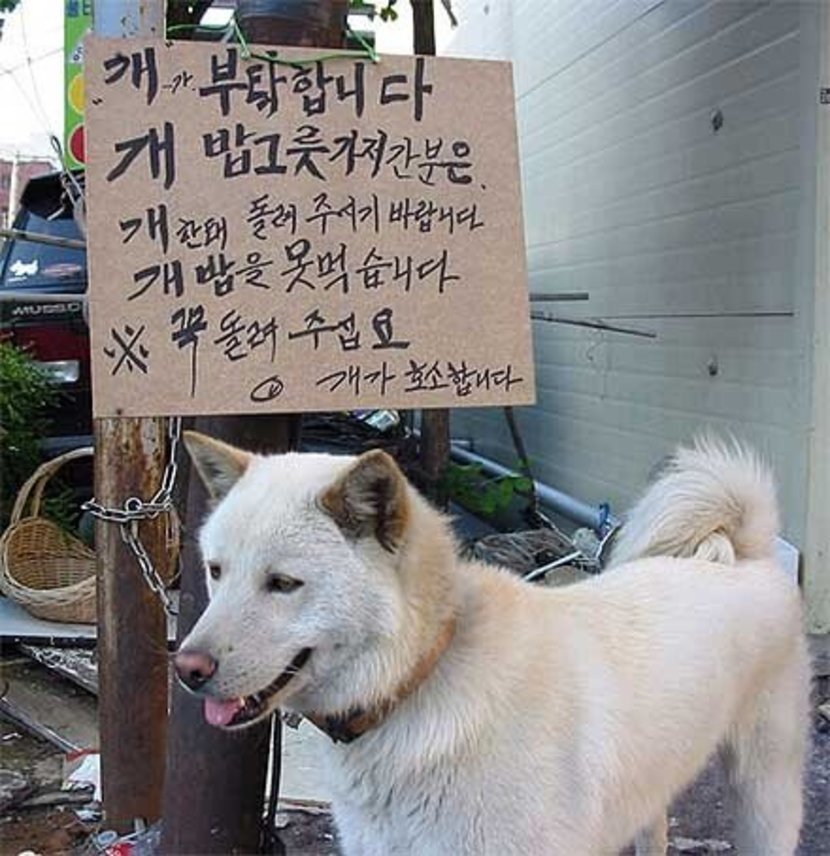 "개"가 부탁합니다
개 밥그릇 가저간분은.
개한태 돌려 주시기 바랍니다
개 밥을 못먹습니다
※ 꼭 돌려 주십요
개가 호소합니다
MUSSO